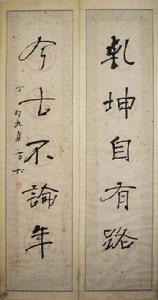 乾坤自有路
今古不論年
丁卯九月